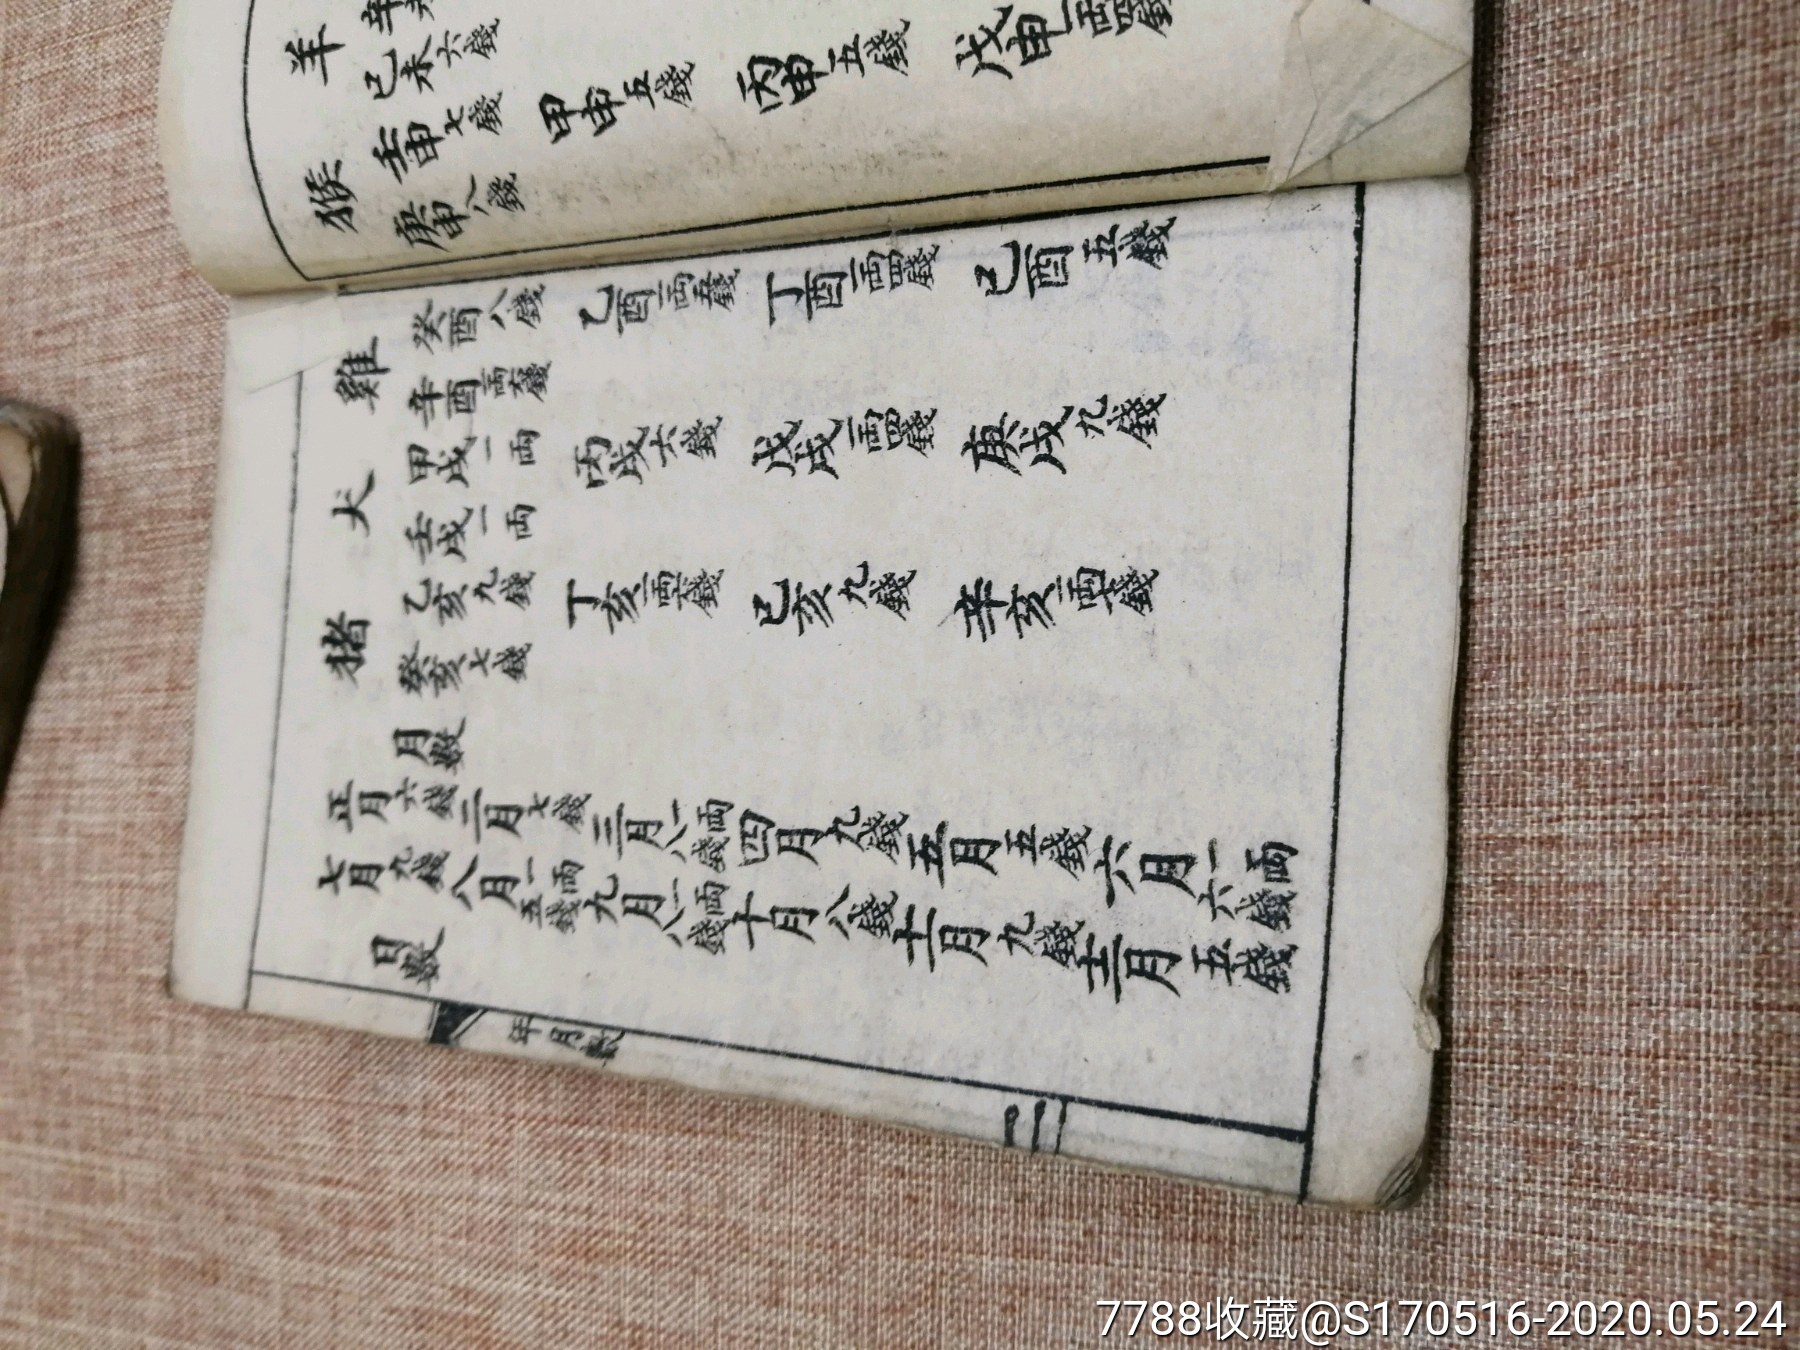 羊
己未六錢
猴 壬申七錢 甲申五錢 丙申五錢 戊申一両四錢
庚申八錢
雞 癸酉八錢 乙酉一両五錢 丁酉一両四錢 己酉五錢
辛酉一両六錢
犬 甲戌一両 丙戌六錢 戊戌一両四錢 庚戌九錢
壬戌一両
猪 乙亥九錢 丁亥一両六錢 己亥九錢 辛亥一両七錢
癸亥七錢
月數
正月六錢 二月七錢 三月一両八錢 四月九錢 五月五錢 六月一両六錢
七月九錢 八月一両五錢 九月一両八錢 十月八錢 十一月九錢 十二月五錢
日數
年月數 二
7788收藏@S170516-2020.05.24